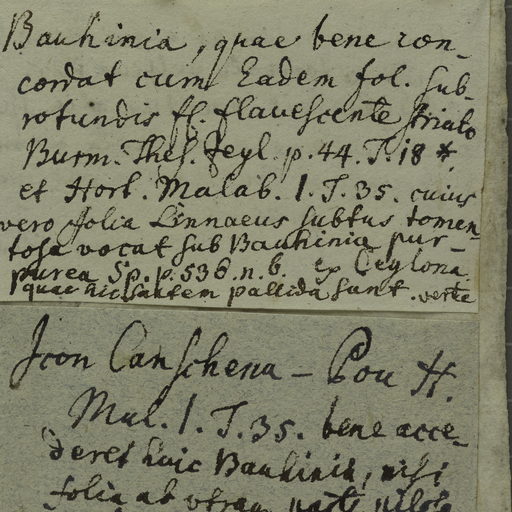 Bauhinia, quae bene con-
cordat cum Eadem fol. sub-
rotundis fl. flavescente striato
Burm. Thes. Zeyl. p. 44. T. 18 *.
et Hort. Malab. 1. T. 35. cuius
vero folia Linnaeus subtus tomen-
tosa vocat sub Bauhinia pur-
purea Sp. p. 536. n. 6. Ex Ceylona.
quae hic autem pallida sunt. verte
Icon Canschena - Pou H.
Mal. 1. T. 35. bene acce-
deret huic Bauhinia, nisi
folia ab utraq parte pilosa